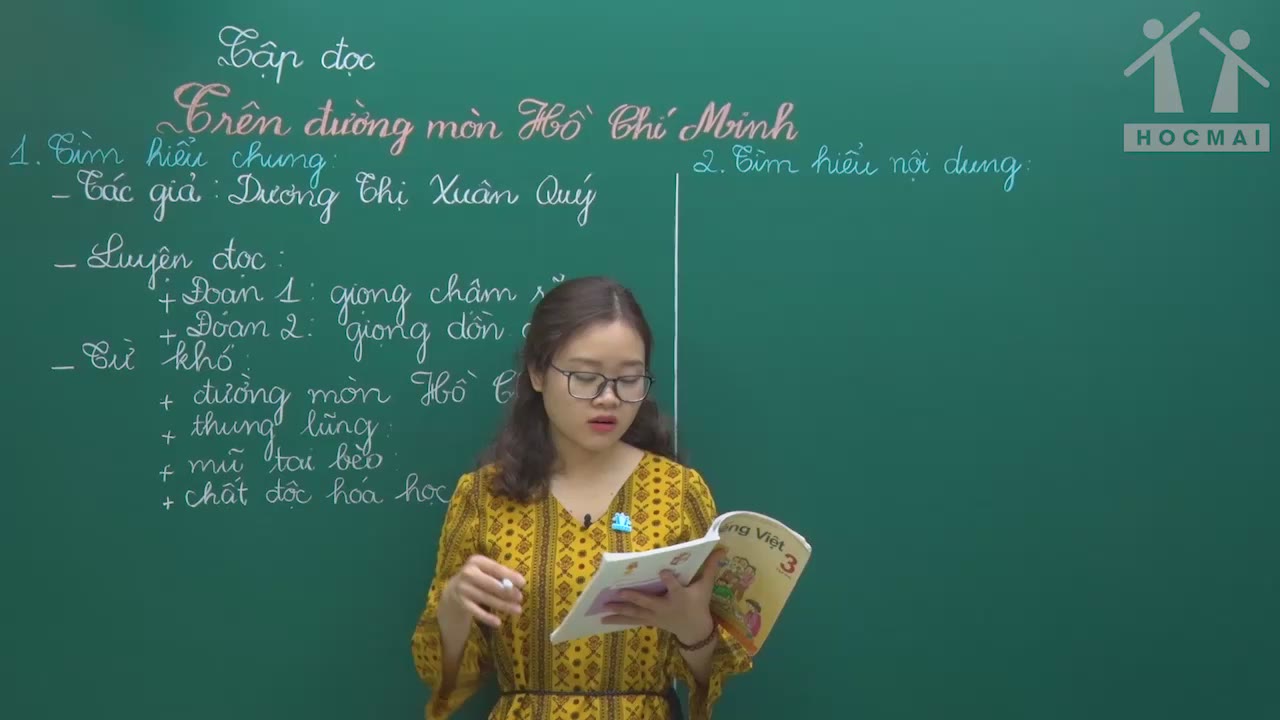 Tập đọc
Trên đường mòn Hồ Chí Minh
1. Tìm hiểu chung:
- Tác giả: Dương Thị Xuân Quý
- Luyện đọc:
+ Đoạn 1: giọng chậm
+ Đoạn 2: giọng dồn
- Từ khó:
+ đường mòn Hồ
+ thung lũng:
+ mũ tai bèo:
+ chất độc hóa học
2. Tìm hiểu nội dung:
HOCMAI
Việt
3